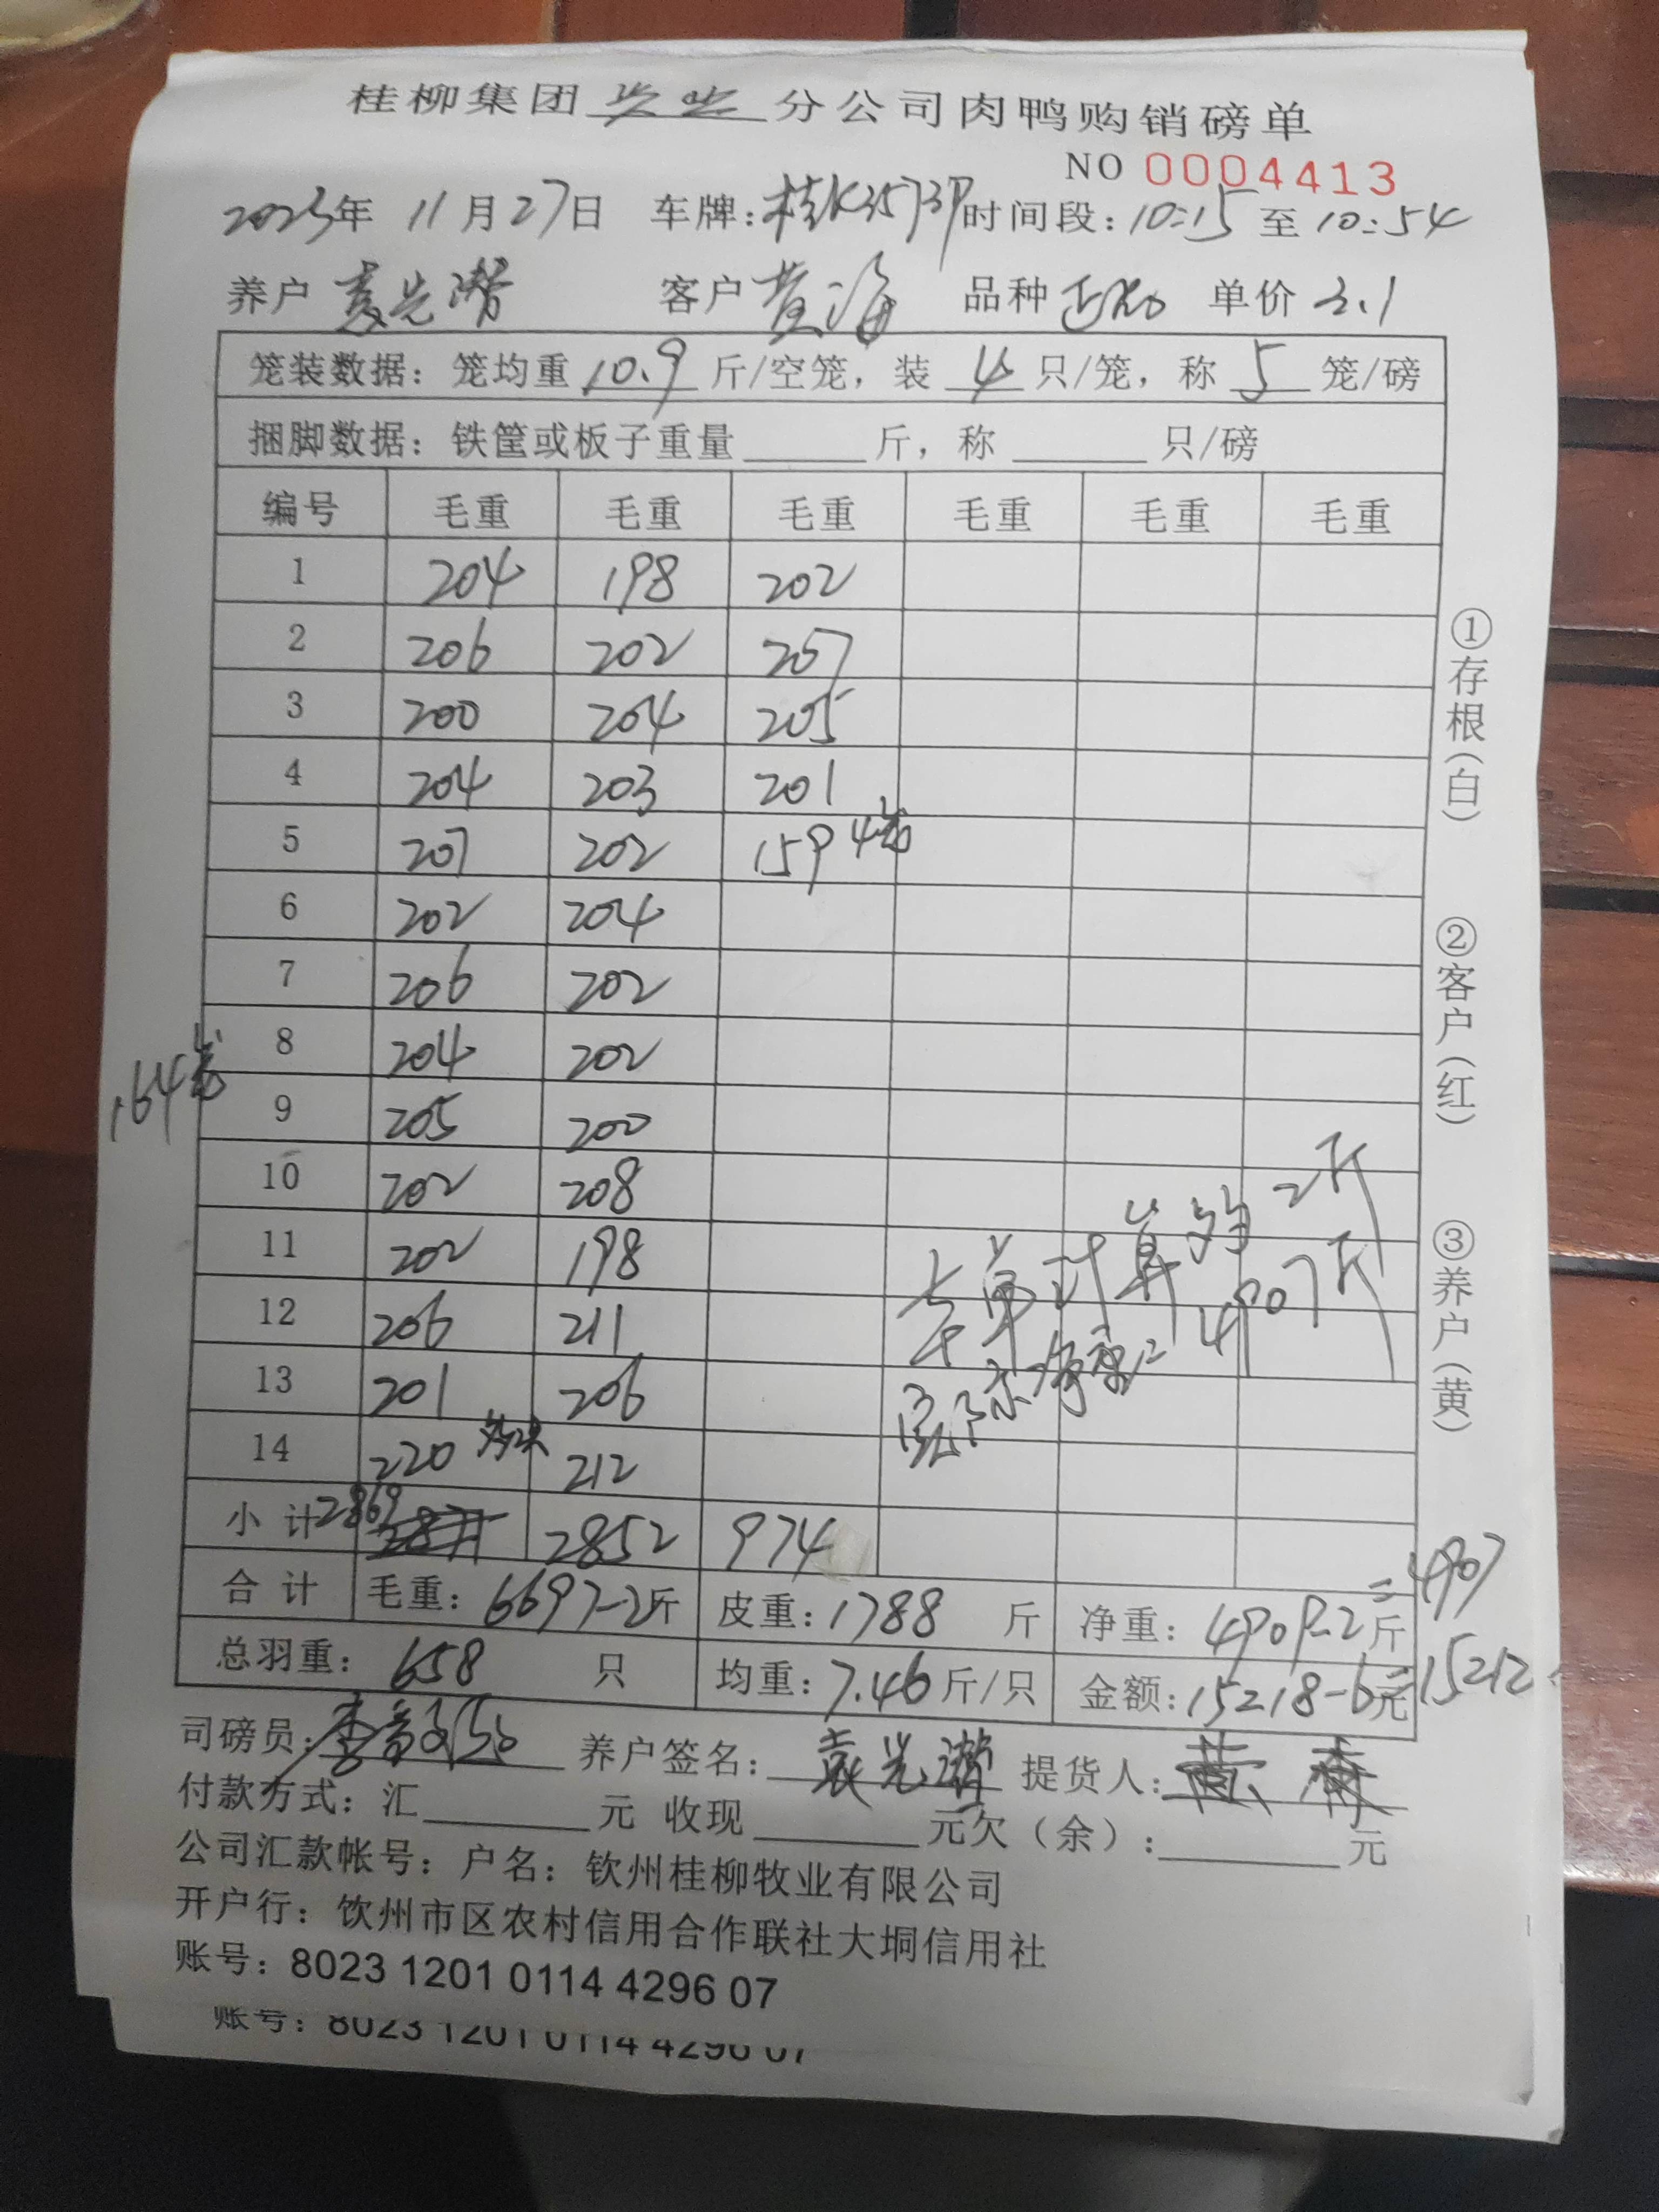 桂柳集团 分公司肉鸭购销磅单
NO 0004413
2023年 11月27日 车牌: 时间段:10:15 至 10:54
养户 客户 黄海 品种 单价 3.1
笼装数据: 笼均重 10.9 斤/空笼, 装 4 只/笼, 称 5 笼/磅
捆脚数据: 铁筐或板子重量 斤, 称 只/磅
编号 毛重 毛重 毛重 毛重 毛重 毛重
1 204 198 202
2 206 202 207
3 200 204 205
4 204 203 201
5 207 202 159 4笼
6 202 204
7 206 202
8 204 202
164笼
9 205 200
10 202 208
11 202 198
12 206 211
13 201 206
14 220 多2只 212
本单计算多2斤
实际净重= 4907斤
小计 2869 2852 974
合计 毛重: 6697-2斤 皮重: 1788 斤 净重: 4909-2斤 =4907
总羽重: 658 只 均重: 7.46 斤/只 金额: 15218-6元=15212
司磅员: 养户签名: 袁光 提货人:
付款方式: 汇 元 收现 元欠(余): 元
公司汇款帐号: 户名: 钦州桂柳牧业有限公司
开户行: 钦州市区农村信用合作联社大垌信用社
账号: 8023 1201 0114 4296 07
账号: 8023 1201 0114 4296 07
①存根(白)
②客户(红)
③养户(黄)